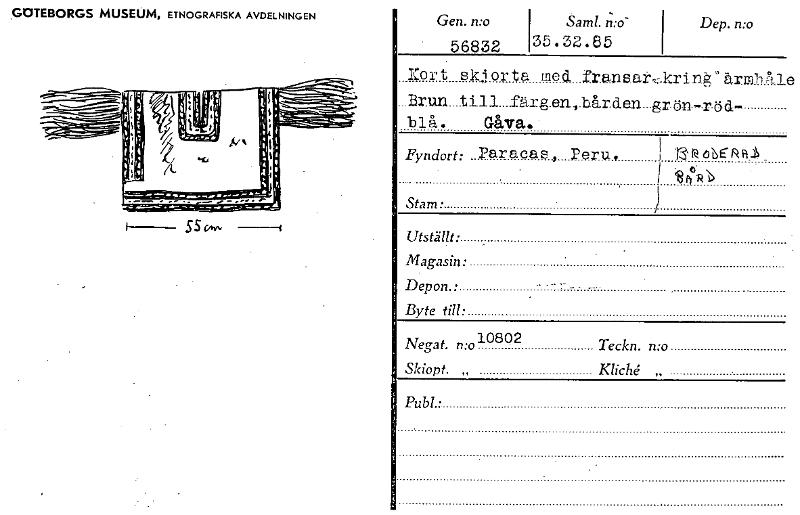 GÖTEBORGS MUSEUM, ETNOGRAFISKA AVDELNINGEN
55 cm
Gen. n:o Saml. n:o Dep. n:o
56832 35.32.85
Kort skjorta med fransar kring ärmhåle
Brun till färgen, bården grön-röd-
blå. Gåva.
Fyndort: Paracas, Peru. BRODERAD
BÅRD
Stam:
Utställt:
Magasin:
Depon.:
Byte till:
Negat. n:o 10802 Teckn. n:o
Skiopt. „ Kliché „
Publ.: